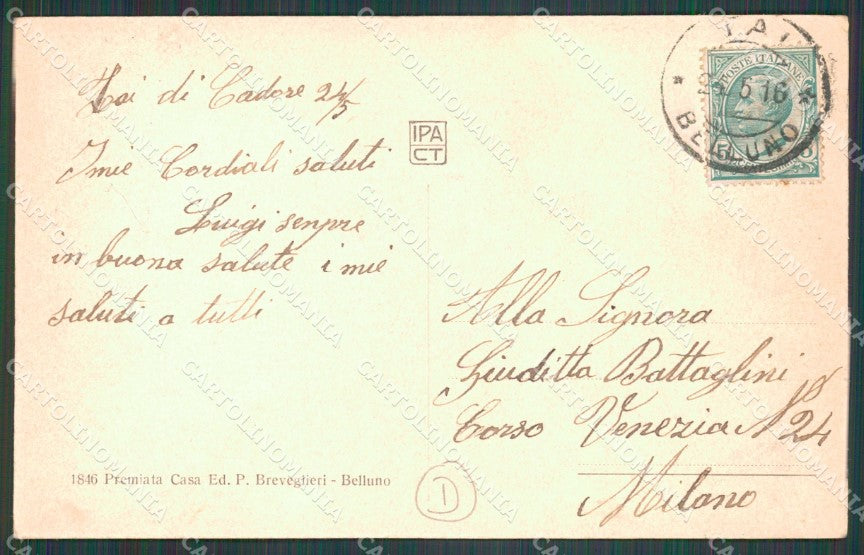 Tai di Cadore 24/5
I mie Cordiali saluti
Luigi senpre
in buona salute i mie
saluti a tutti
IPA
CT
TAI
5 16
BELLUNO
POSTE ITALIANE
Alla Signora
Giuditta Battaglini
Corso Venezia N° 24
Milano
1846 Premiata Casa Ed. P. Breveglieri - Belluno
1
CARTOLINOMANIA